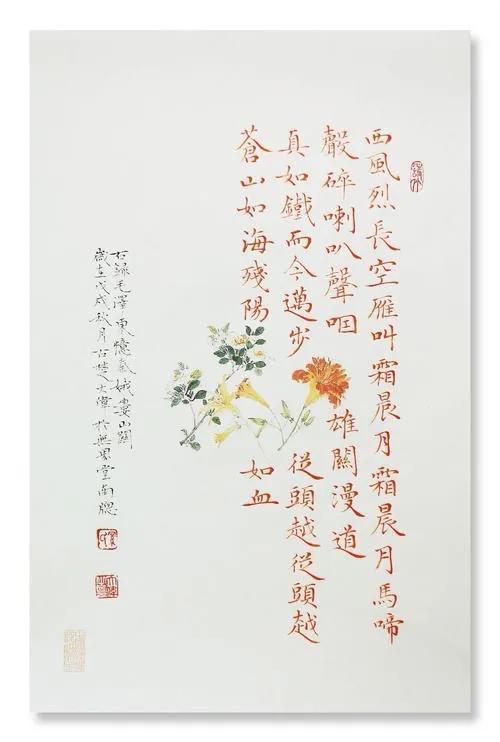 西風烈長空雁叫霜晨月霜晨月馬啼
聲碎喇叭聲咽 雄關漫道
真如鐵而今邁步 從頭越從頭越
蒼山如海殘陽 如血
右録毛澤東憶秦娥婁山關
歲在戊戌秋月古楚大偉於無堂南牕